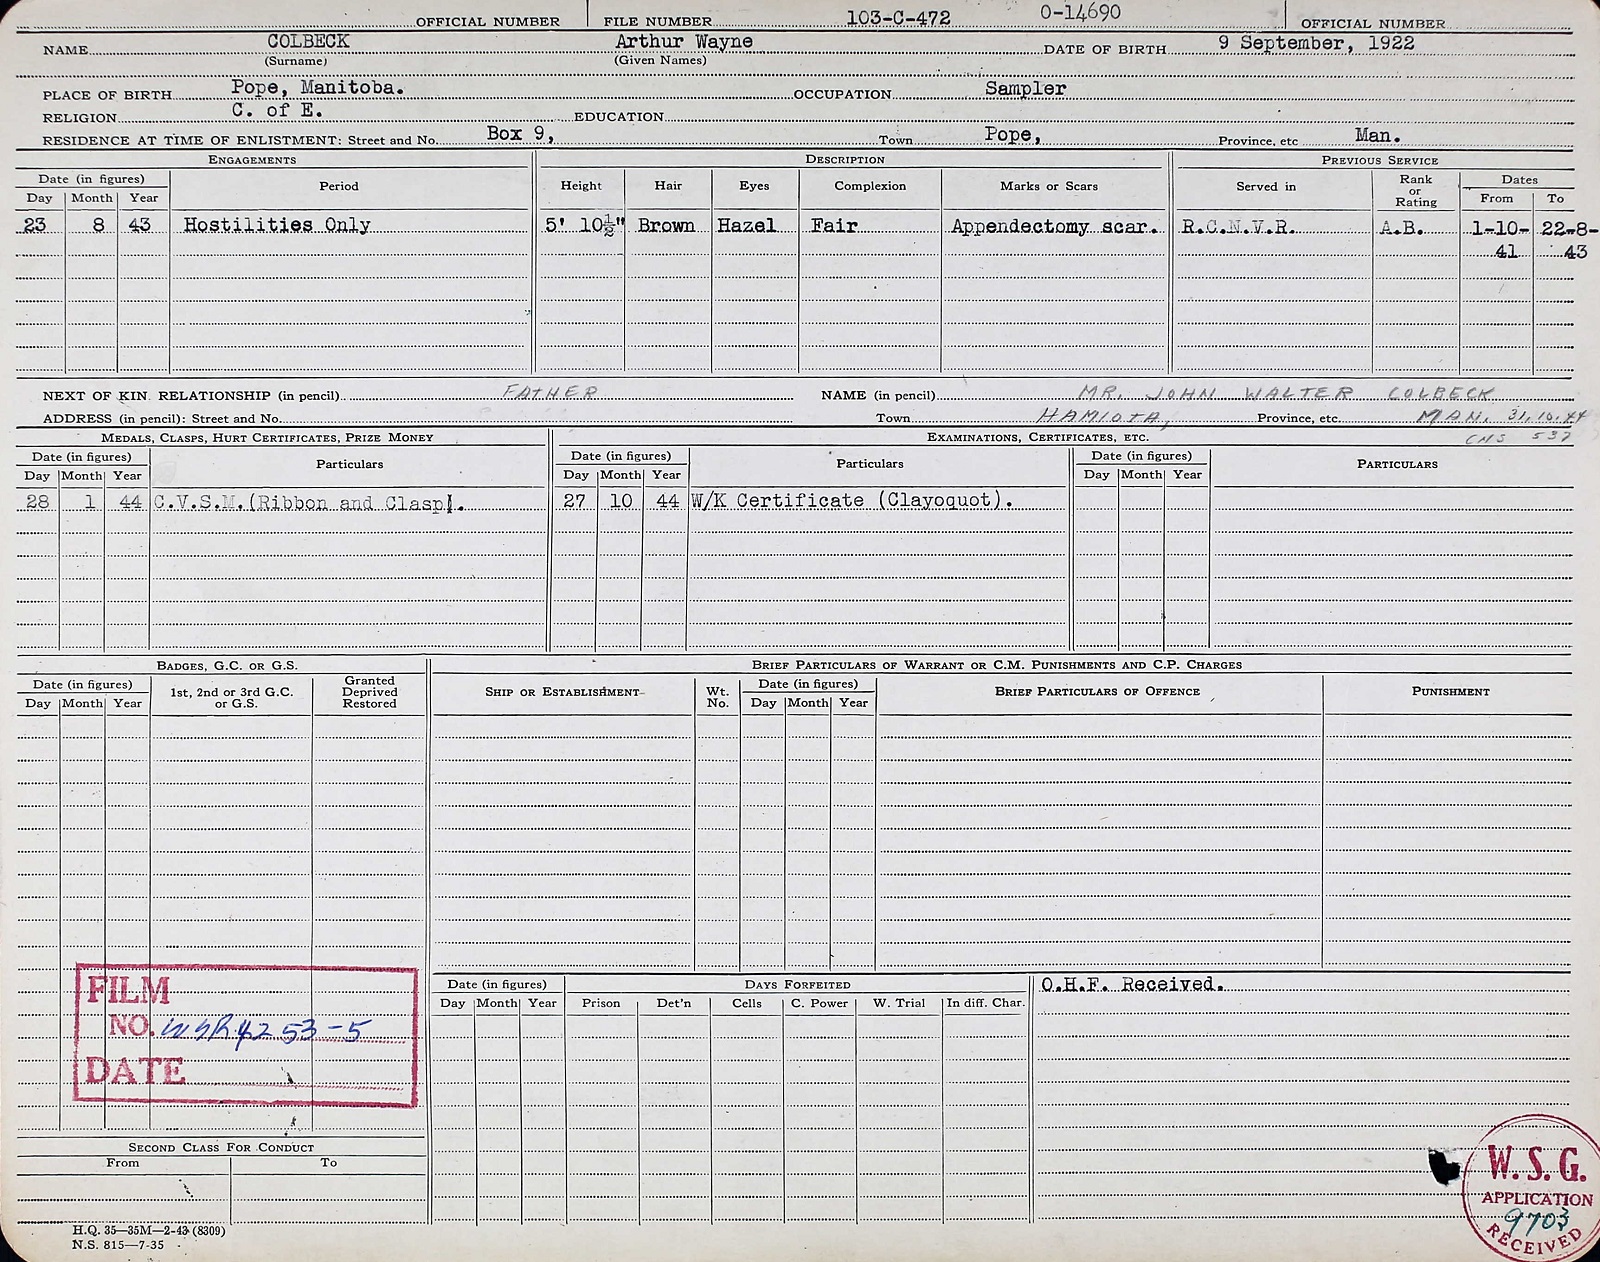 OFFICIAL NUMBER FILE NUMBER 103-C-472 O-14690 OFFICIAL NUMBER
NAME COLBECK Arthur Wayne DATE OF BIRTH 9 September, 1922
(Surname) (Given Names)
PLACE OF BIRTH Pope, Manitoba. OCCUPATION Sampler
RELIGION C. of E. EDUCATION
RESIDENCE AT TIME OF ENLISTMENT: Street and No. Box 9, Town Pope, Province, etc Man.
ENGAGEMENTS DESCRIPTION PREVIOUS SERVICE
Date (in figures) Period Height Hair Eyes Complexion Marks or Scars Served in Rank or Rating Dates
Day Month Year From To
23 8 43 Hostilities Only 5' 10½" Brown Hazel Fair Appendectomy scar. R.C.N.V.R. A.B. 1-10- 22-8-
41 43
NEXT OF KIN RELATIONSHIP (in pencil) FATHER NAME (in pencil) MR. JOHN WALTER COLBECK
ADDRESS (in pencil): Street and No. Town HAMIOTA, Province, etc. MAN. 31.10.44
CNS 537
MEDALS, CLASPS, HURT CERTIFICATES, PRIZE MONEY EXAMINATIONS, CERTIFICATES, ETC.
Date (in figures) Particulars Date (in figures) Particulars Date (in figures) PARTICULARS
Day Month Year Day Month Year Day Month Year
28 1 44 C.V.S.M.(Ribbon and Clasp). 27 10 44 W/K Certificate (Clayoquot).
BADGES, G.C. OR G.S. BRIEF PARTICULARS OF WARRANT OR C.M. PUNISHMENTS AND C.P. CHARGES
Date (in figures) 1st, 2nd or 3rd G.C. or G.S. Granted Deprived Restored SHIP OR ESTABLISHMENT Wt. No. Date (in figures) BRIEF PARTICULARS OF OFFENCE PUNISHMENT
Day Month Year Day Month Year
FILM
NO. WSR4253-5
DATE
Date (in figures) DAYS FORFEITED O.H.F. Received.
Day Month Year Prison Det'n Cells C. Power W. Trial In diff. Char.
SECOND CLASS FOR CONDUCT
From To
W.S.G.
APPLICATION
9703
RECEIVED
H.Q. 35—35M—2-43 (8309)
N.S. 815—7-35